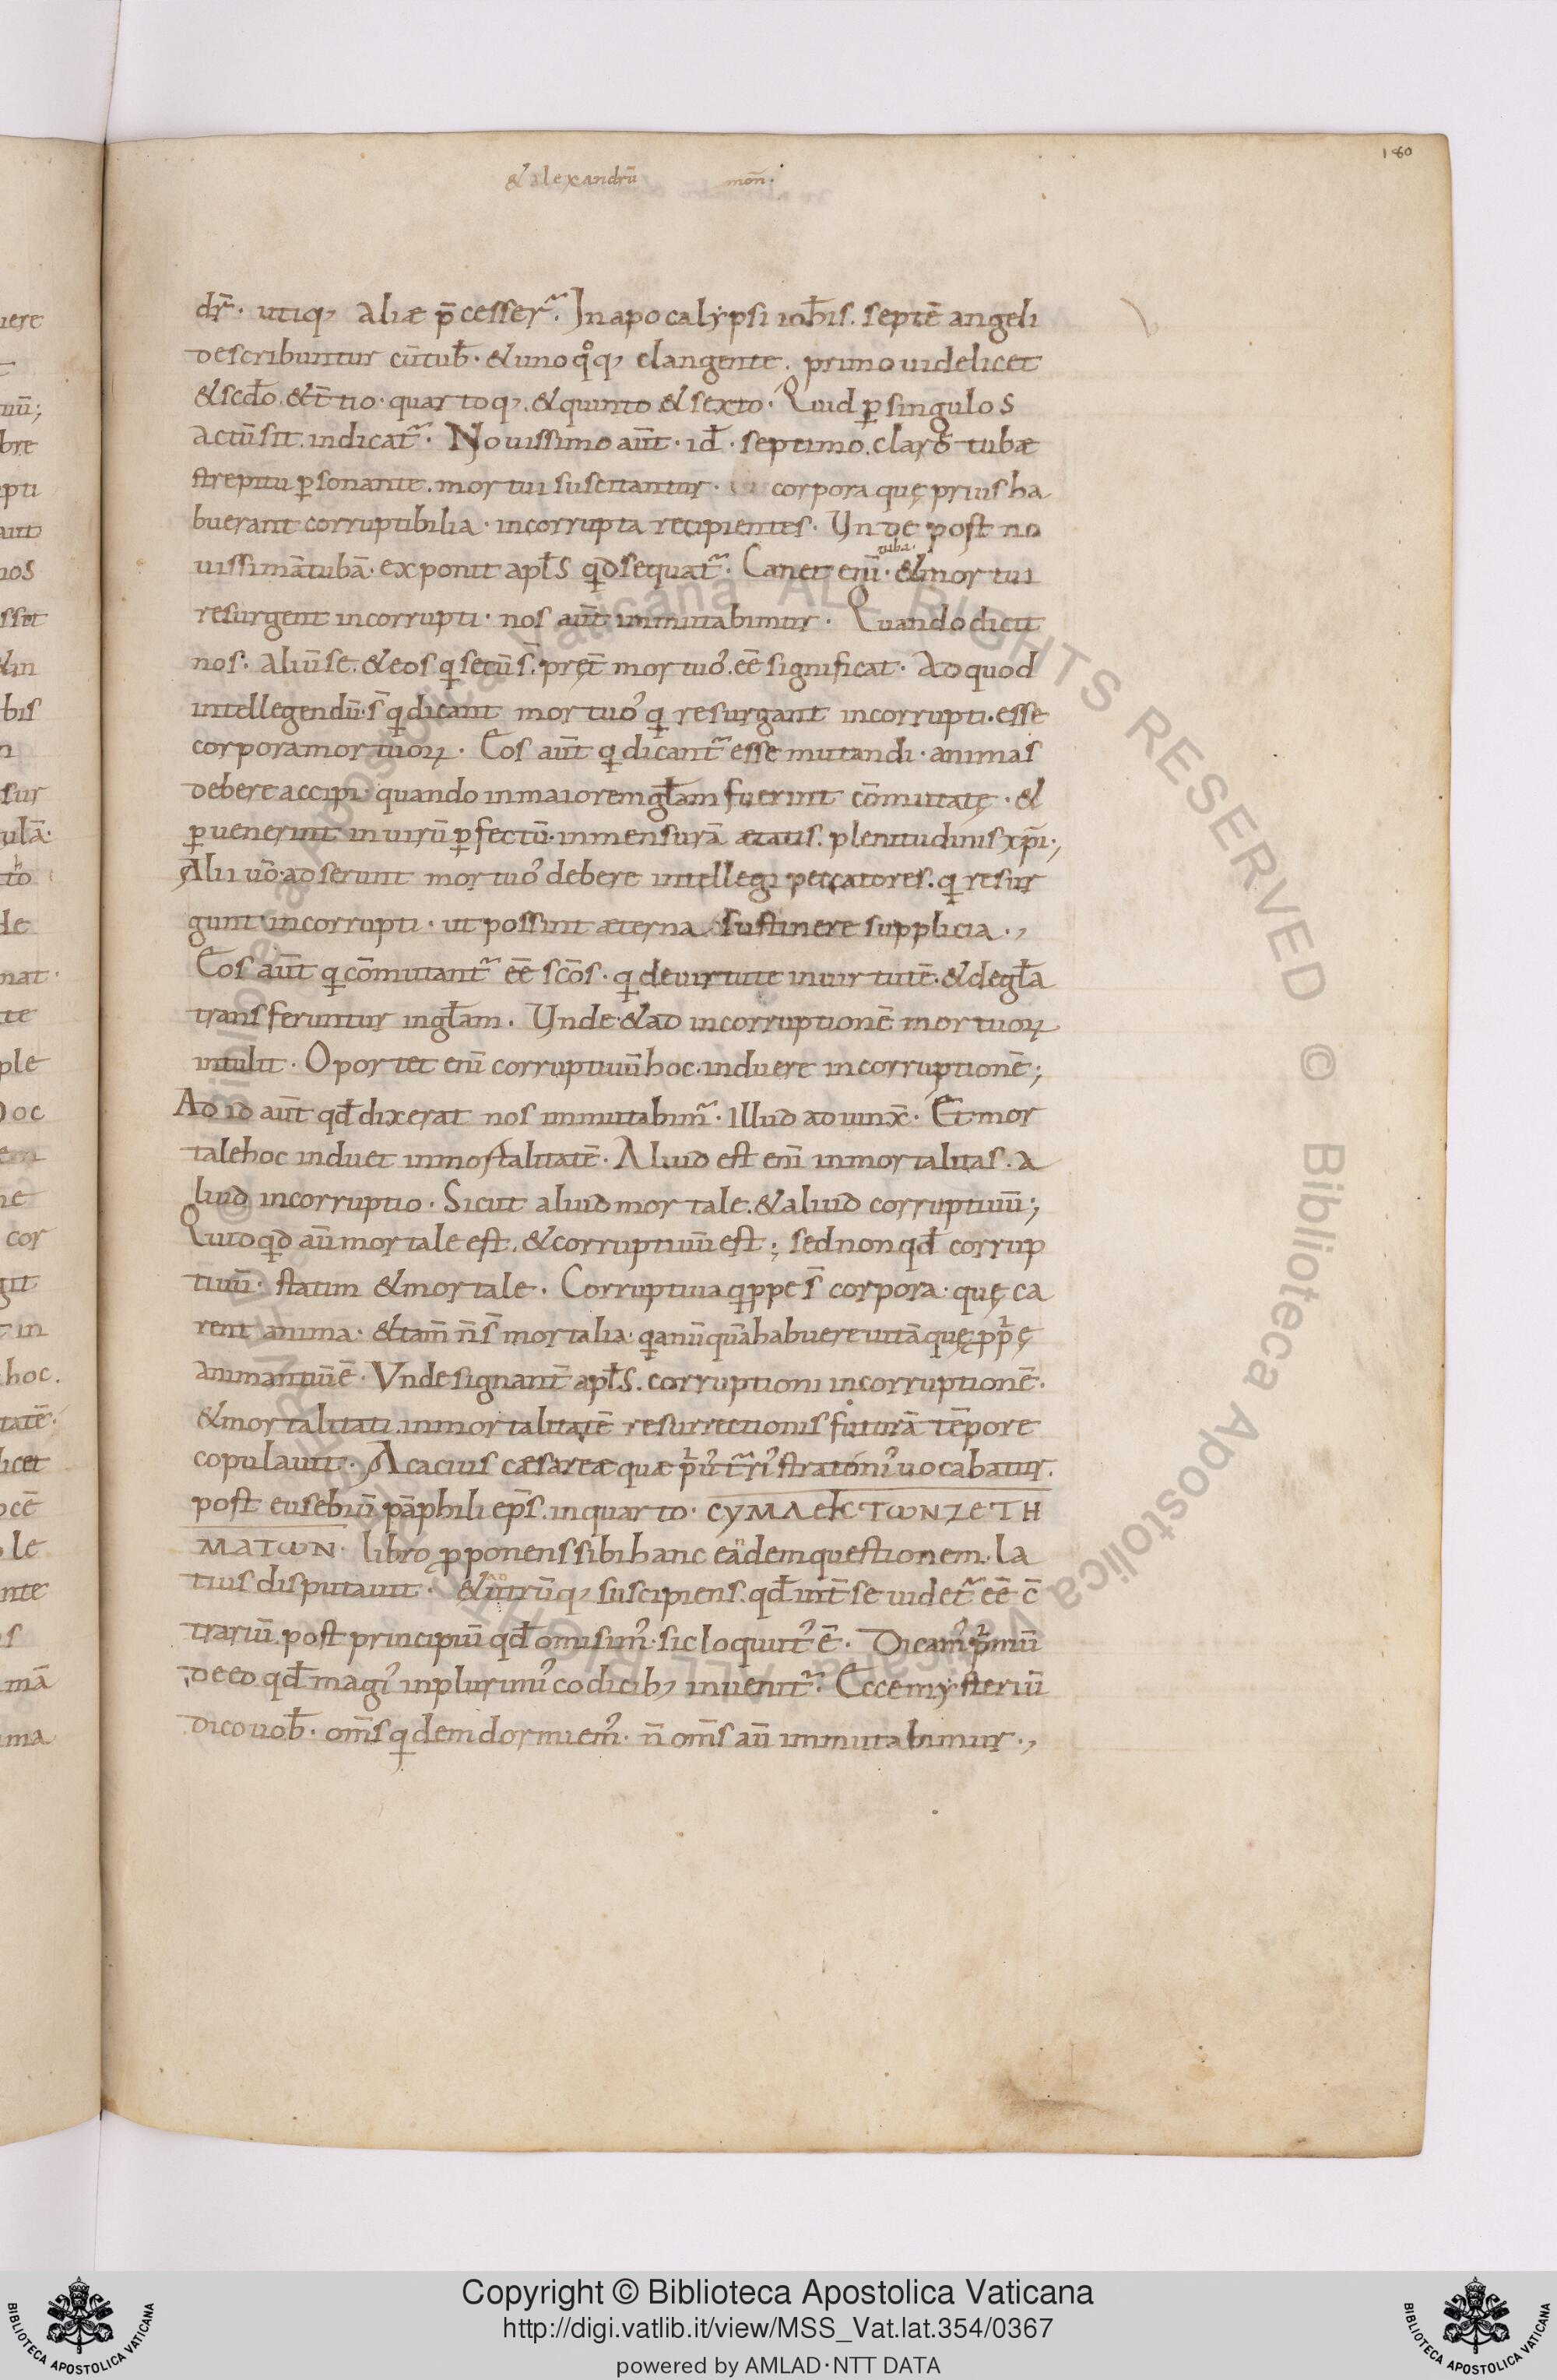 180
& alexandrū mon̄.
dr̄. utiq, aliæ p̄cesser̃. In apocalypsi ioħis. septē angeli
describuntur cū tuƀ. & uno q°q, clangente. primo uidelicet
& scđo. & t̄tio. quartoq,. & quinto & sexto. Quid ꝑ singulos
actū sit indicat̃. Nouissimo aūt. iđ. septimo. claro tubæ
strepitu ꝑsonante. mortui suscitantur. corpora quę prius ha
buerant corruptibilia. incorrupta recipientes. Vnde post no
uissimā tubā. exponit apłs qđ sequat̃. Canet enī. & mortui
tuba.
resurgent incorrupti. nos aūt immutabimur. Quando dicit
nos. aliū se. & eos qui secū s̄. pręt̄ mortuo᾽. eē significat. Ad quod
intellegendū. s̄ qui dicant mortuo᾽ qui resurgant incorrupti. esse
corpora mortuoꝝ. Eos aūt qui dicant̃ esse mutandi. animas
debere accipi. quando in maiorem głam fuerint cōmutatę. &
ꝑuenerint in uirū ꝑfectū. in mensurā ætatis. plenitudinis xp̄i.,
Alii uō. adserunt mortuo᾽ debere intellegi peccatores. qui resur
gunt incorrupti. ut possint æterna sustinere supplicia.,
Eos aūt qui cōmutant̃ eē scōs. qui de uirtute in uirtutē. & de gła
transferuntur in głam. Vnde & ad incorruptionē mortuoꝝ
intulit. Oportet enī corruptiuū hoc. induere incorruptionē;
Ad id aūt qđ dixerat nos immutabim̃. Illud adiunx̄. Et mor
tale hoc induet inmortalitatē. Aliud est enī inmortalitas. a
liud incorruptio. Sicut aliud mortale. & aliud corruptiuū;
Quidqđ aūt mortale est. & corruptiuū est; sed non qđ corrup
tiuū. statim & mortale. Corruptiua q͛ppe s̄ corpora. quę ca
rent anima. & tam̄ n̄ s̄ mortalia. quia nūquā habuere uitā quę ppͥę
animantiū ē. Vnde signant̄ apłs. corruptioni incorruptionē.
& mortalitati. inmortalitatē resurrectionis futurā tēpore
copulauit. Acacius cæsareæ quæ pͥu᾽ t̃ri᾽ stratoni᾽ uocabatur.
post eusebiū pāphili ep̄s. in quarto. CYMΛEKTωNZETH
MATωN. libro ꝓponens sibi hanc eādem questionem. la
tius disputauit. & utrūq, suscipiens. qđ int̄ se uidet̃ eē c̄
trariū. post principiū qđ omisim᾽. sic loquut᾽ ē. Dicam᾽ pͥmū
de eo qđ magi᾽ in plurimi᾽ codicib, inuenit̃. Ecce mysteriū
dico uoƀ. om̄s quidem dormiem᾽. n̄ om̄s aū immutabimur.,
Copyright © Biblioteca Apostolica Vaticana
http://digi.vatlib.it/view/MSS_Vat.lat.354/0367
powered by AMLAD·NTT DATA
BIBLIOTECA APOSTOLICA VATICANA
BIBLIOTECA APOSTOLICA VATICANA